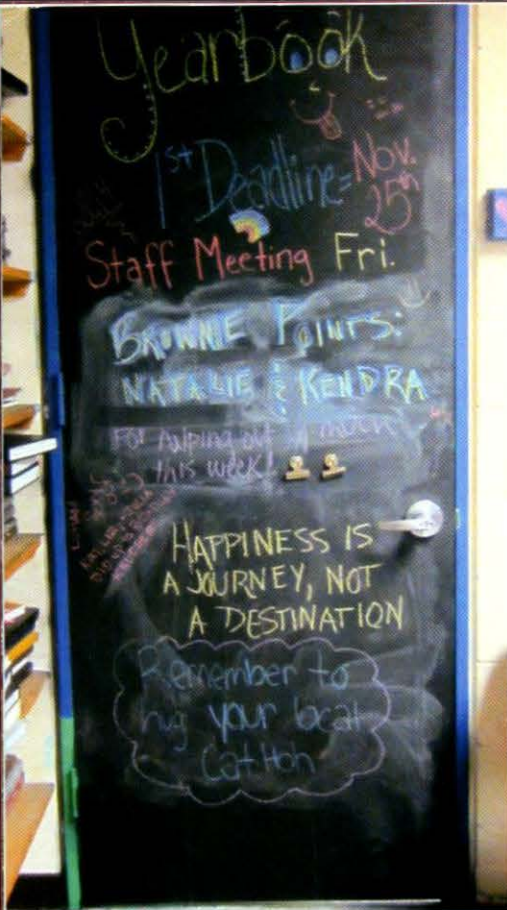 Yearbook
1st Deadline =
Nov.
25th
Staff Meeting Fri.
BROWNIE POINTS:
NATALIE & KENDRA
For helping out so much
this week!
HAPPINESS IS
A JOURNEY, NOT
A DESTINATION
Remember to
hug your local